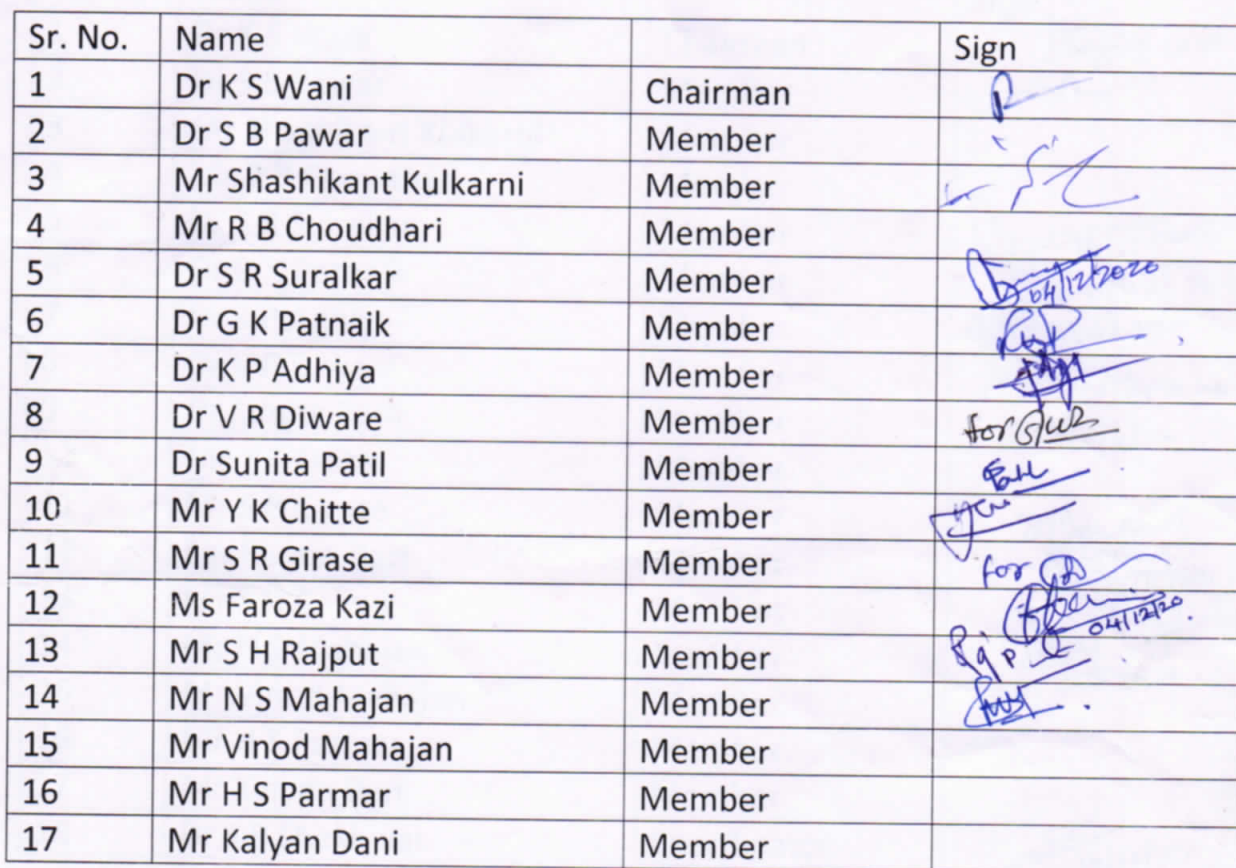 Sr. No. Name Sign
1 Dr K S Wani Chairman
2 Dr S B Pawar Member
3 Mr Shashikant Kulkarni Member
4 Mr R B Choudhari Member
5 Dr S R Suralkar Member 04/12/2020
6 Dr G K Patnaik Member
7 Dr K P Adhiya Member
8 Dr V R Diware Member for
9 Dr Sunita Patil Member
10 Mr Y K Chitte Member
11 Mr S R Girase Member for
12 Ms Faroza Kazi Member 04/12/20.
13 Mr S H Rajput Member
14 Mr N S Mahajan Member
15 Mr Vinod Mahajan Member
16 Mr H S Parmar Member
17 Mr Kalyan Dani Member